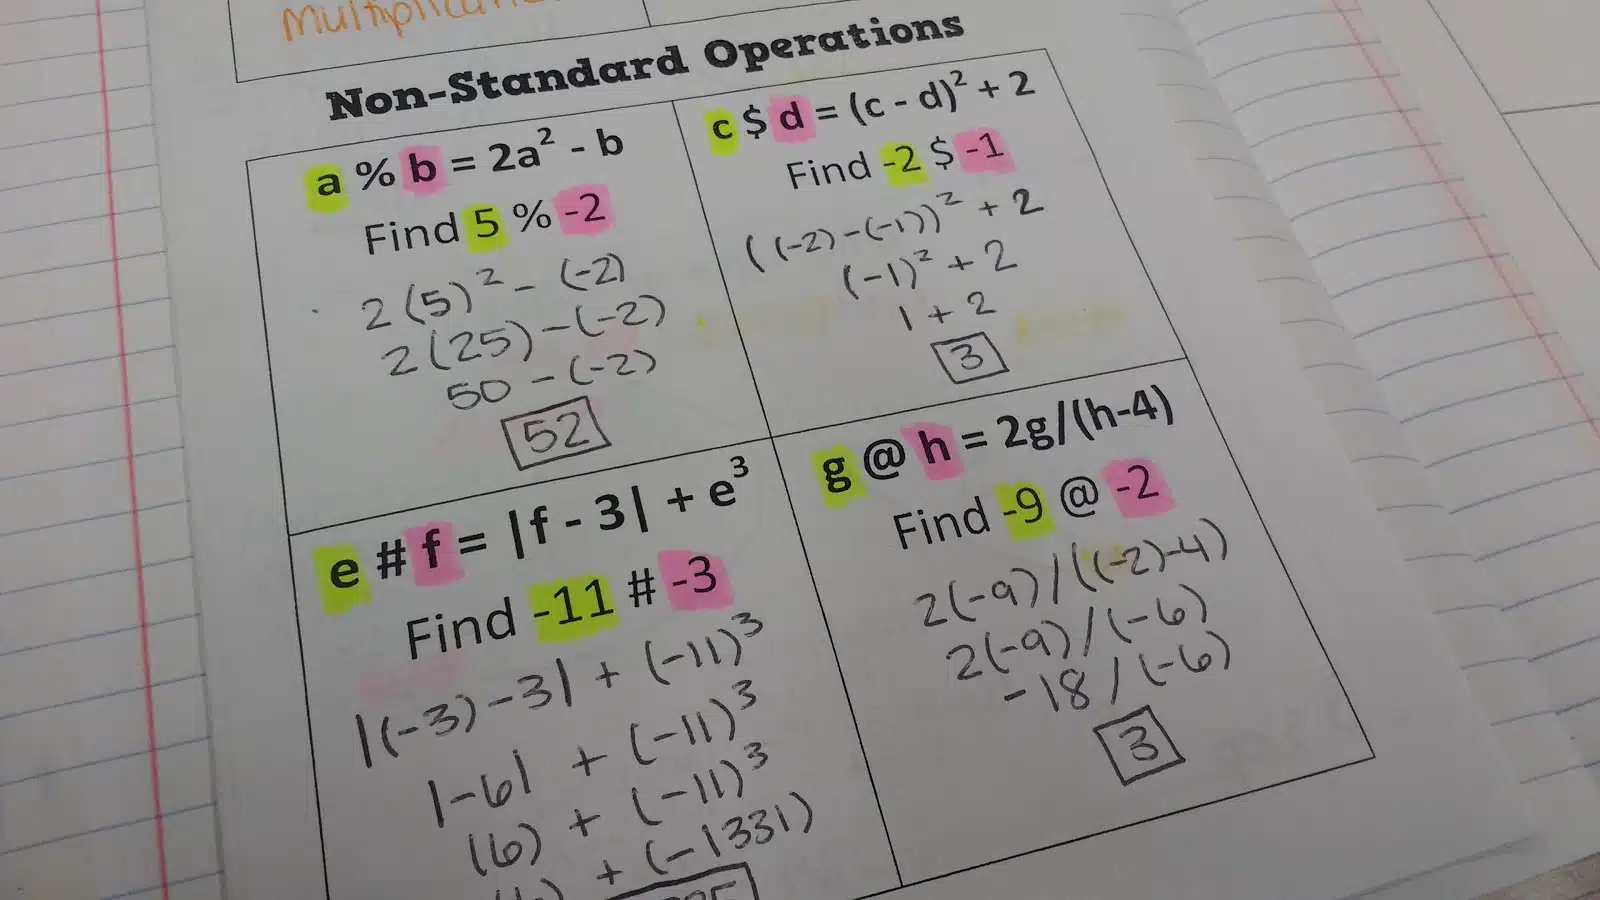 Non-Standard Operations
a % b = 2a² - b
Find 5 % -2
2(5)² - (-2)
2(25) - (-2)
50 - (-2)
52
c $ d = (c - d)² + 2
Find -2 $ -1
((-2) - (-1))² + 2
(-1)² + 2
1 + 2
3
e # f = |f - 3| + e³
Find -11 # -3
|(-3) - 3| + (-11)³
|-6| + (-11)³
(6) + (-11)³
+ (-1331)
g @ h = 2g/(h-4)
Find -9 @ -2
2(-9)/((-2)-4)
2(-9)/(-6)
-18/(-6)
3